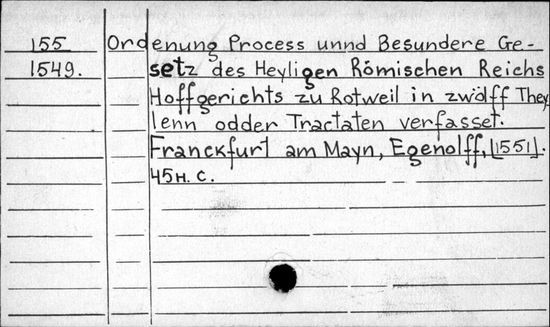 155 Ordenung Process unnd Besundere Ge-
1549. setz des Heyligen Römischen Reichs
Hoffgerichts zu Rotweil in zwölff They
lenn odder Tractaten verfasset.
Franckfurt am Mayn, Egenolff, [1551].
45 н. с.